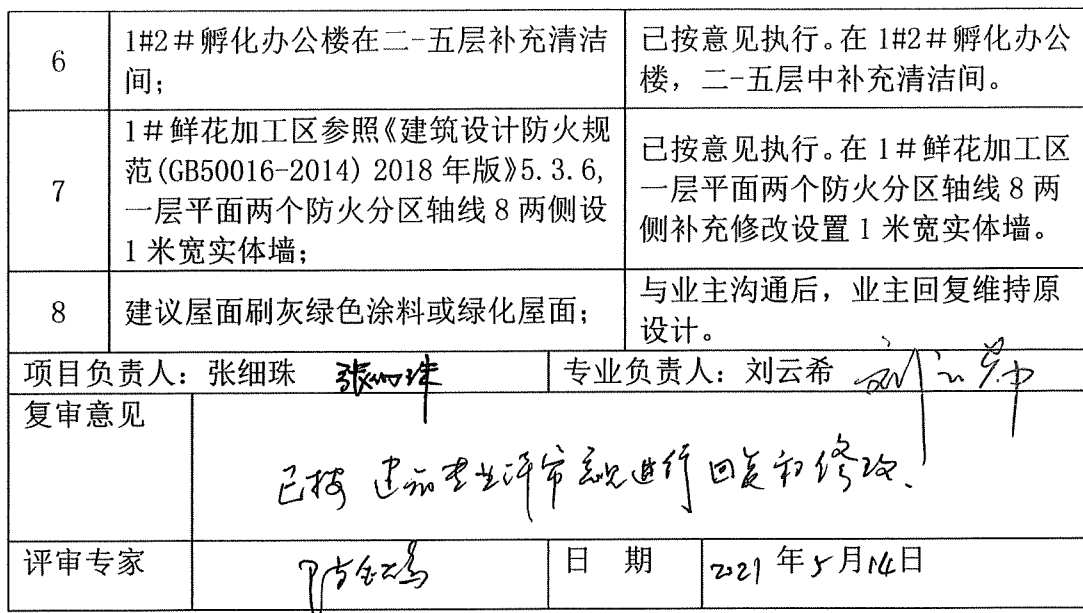 6
1#2#孵化办公楼在二-五层补充清洁
间;
已按意见执行。在1#2#孵化办公
楼，二-五层中补充清洁间。
7
1#鲜花加工区参照《建筑设计防火规
范(GB50016-2014) 2018年版》5.3.6,
一层平面两个防火分区轴线8两侧设
1米宽实体墙;
已按意见执行。在1#鲜花加工区
一层平面两个防火分区轴线8两
侧补充修改设置1米宽实体墙。
8
建议屋面刷灰绿色涂料或绿化屋面;
与业主沟通后，业主回复维持原
设计。
项目负责人：张细珠 张细珠
专业负责人：刘云希 刘云希
复审意见
已按建筑专业评审意见进行回复和修改.
评审专家
日 期
2021年5月14日